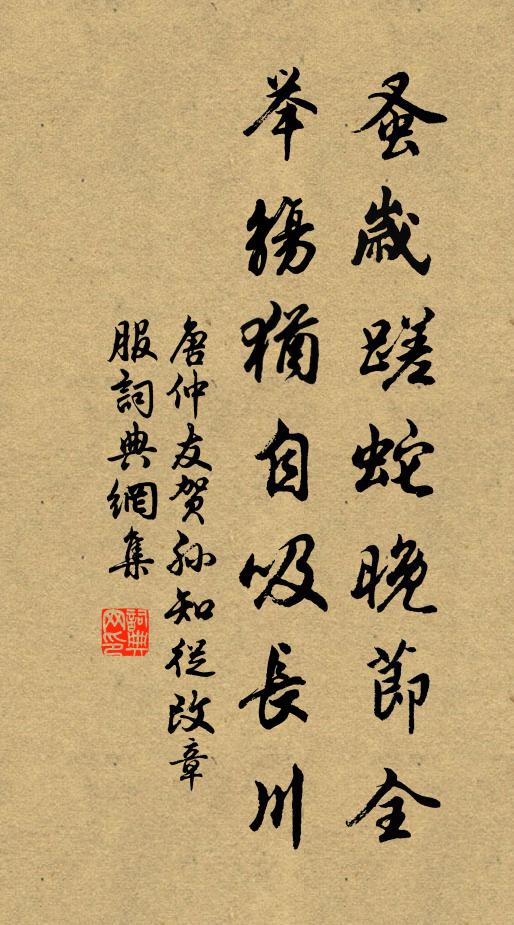 蚤歲蹉蛇晚節全
舉觴猶自吸長川
唐仲友賀孫知從改章
服詞典網集
詞典網印